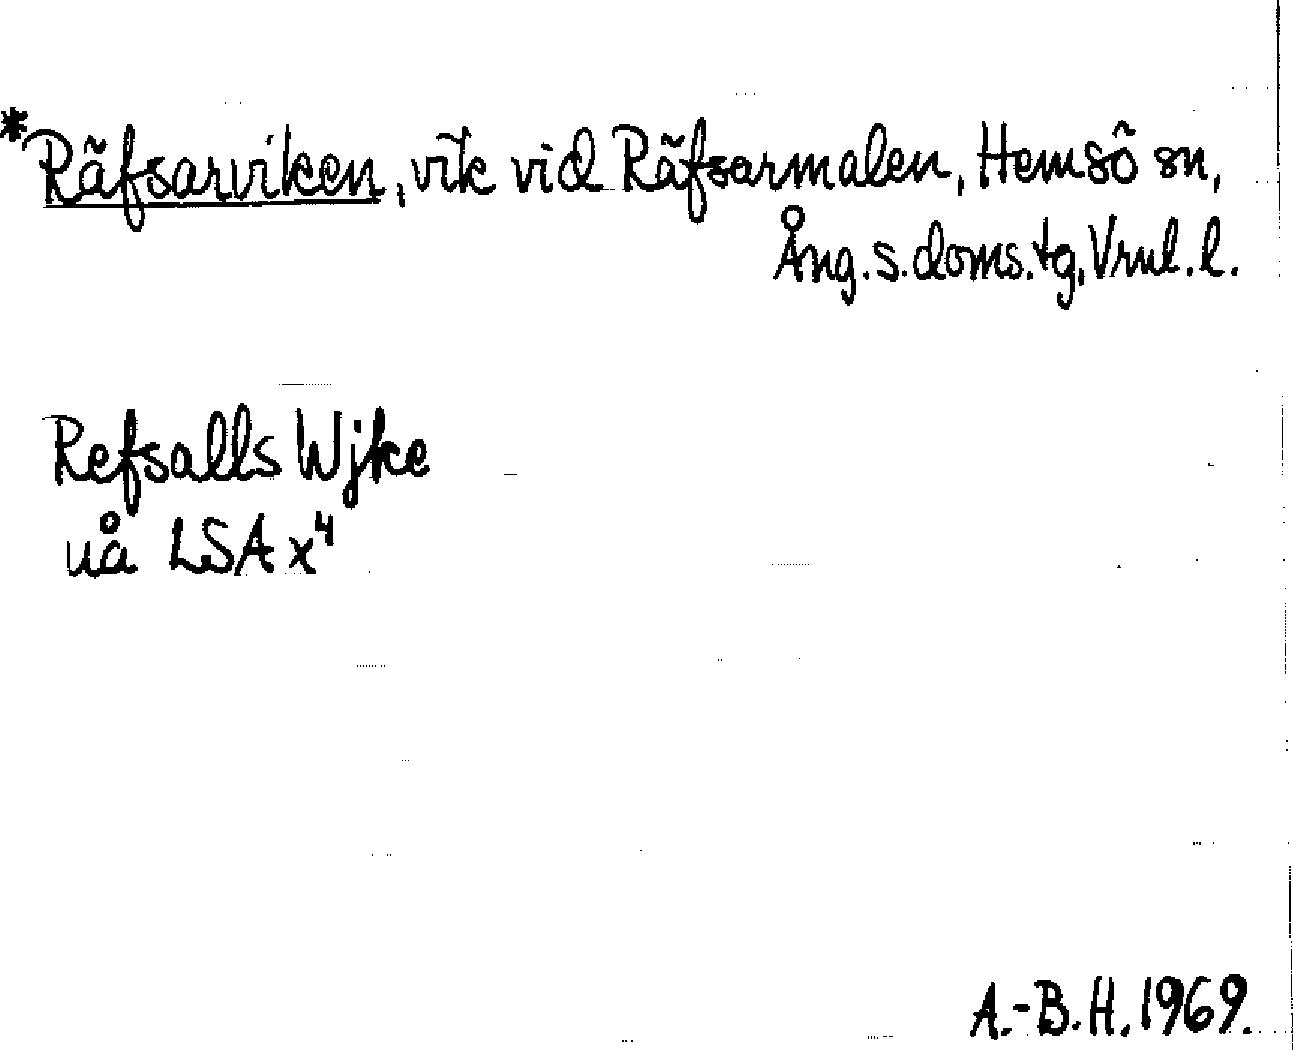 *Räfsarviken, vik vid Räfsarmalen, Hemsö sn,
Ång. s. doms. tg, Vrnl. l.
Refsalls Wjke
uå LSA x⁴
A.-B. H. 1969.